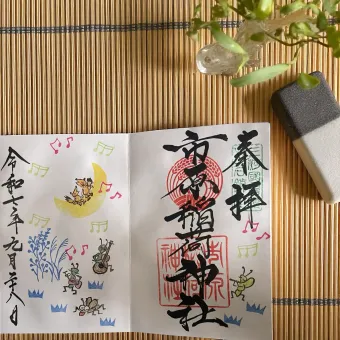 奉拝
市原稲荷神社
令和七年九月二十八日